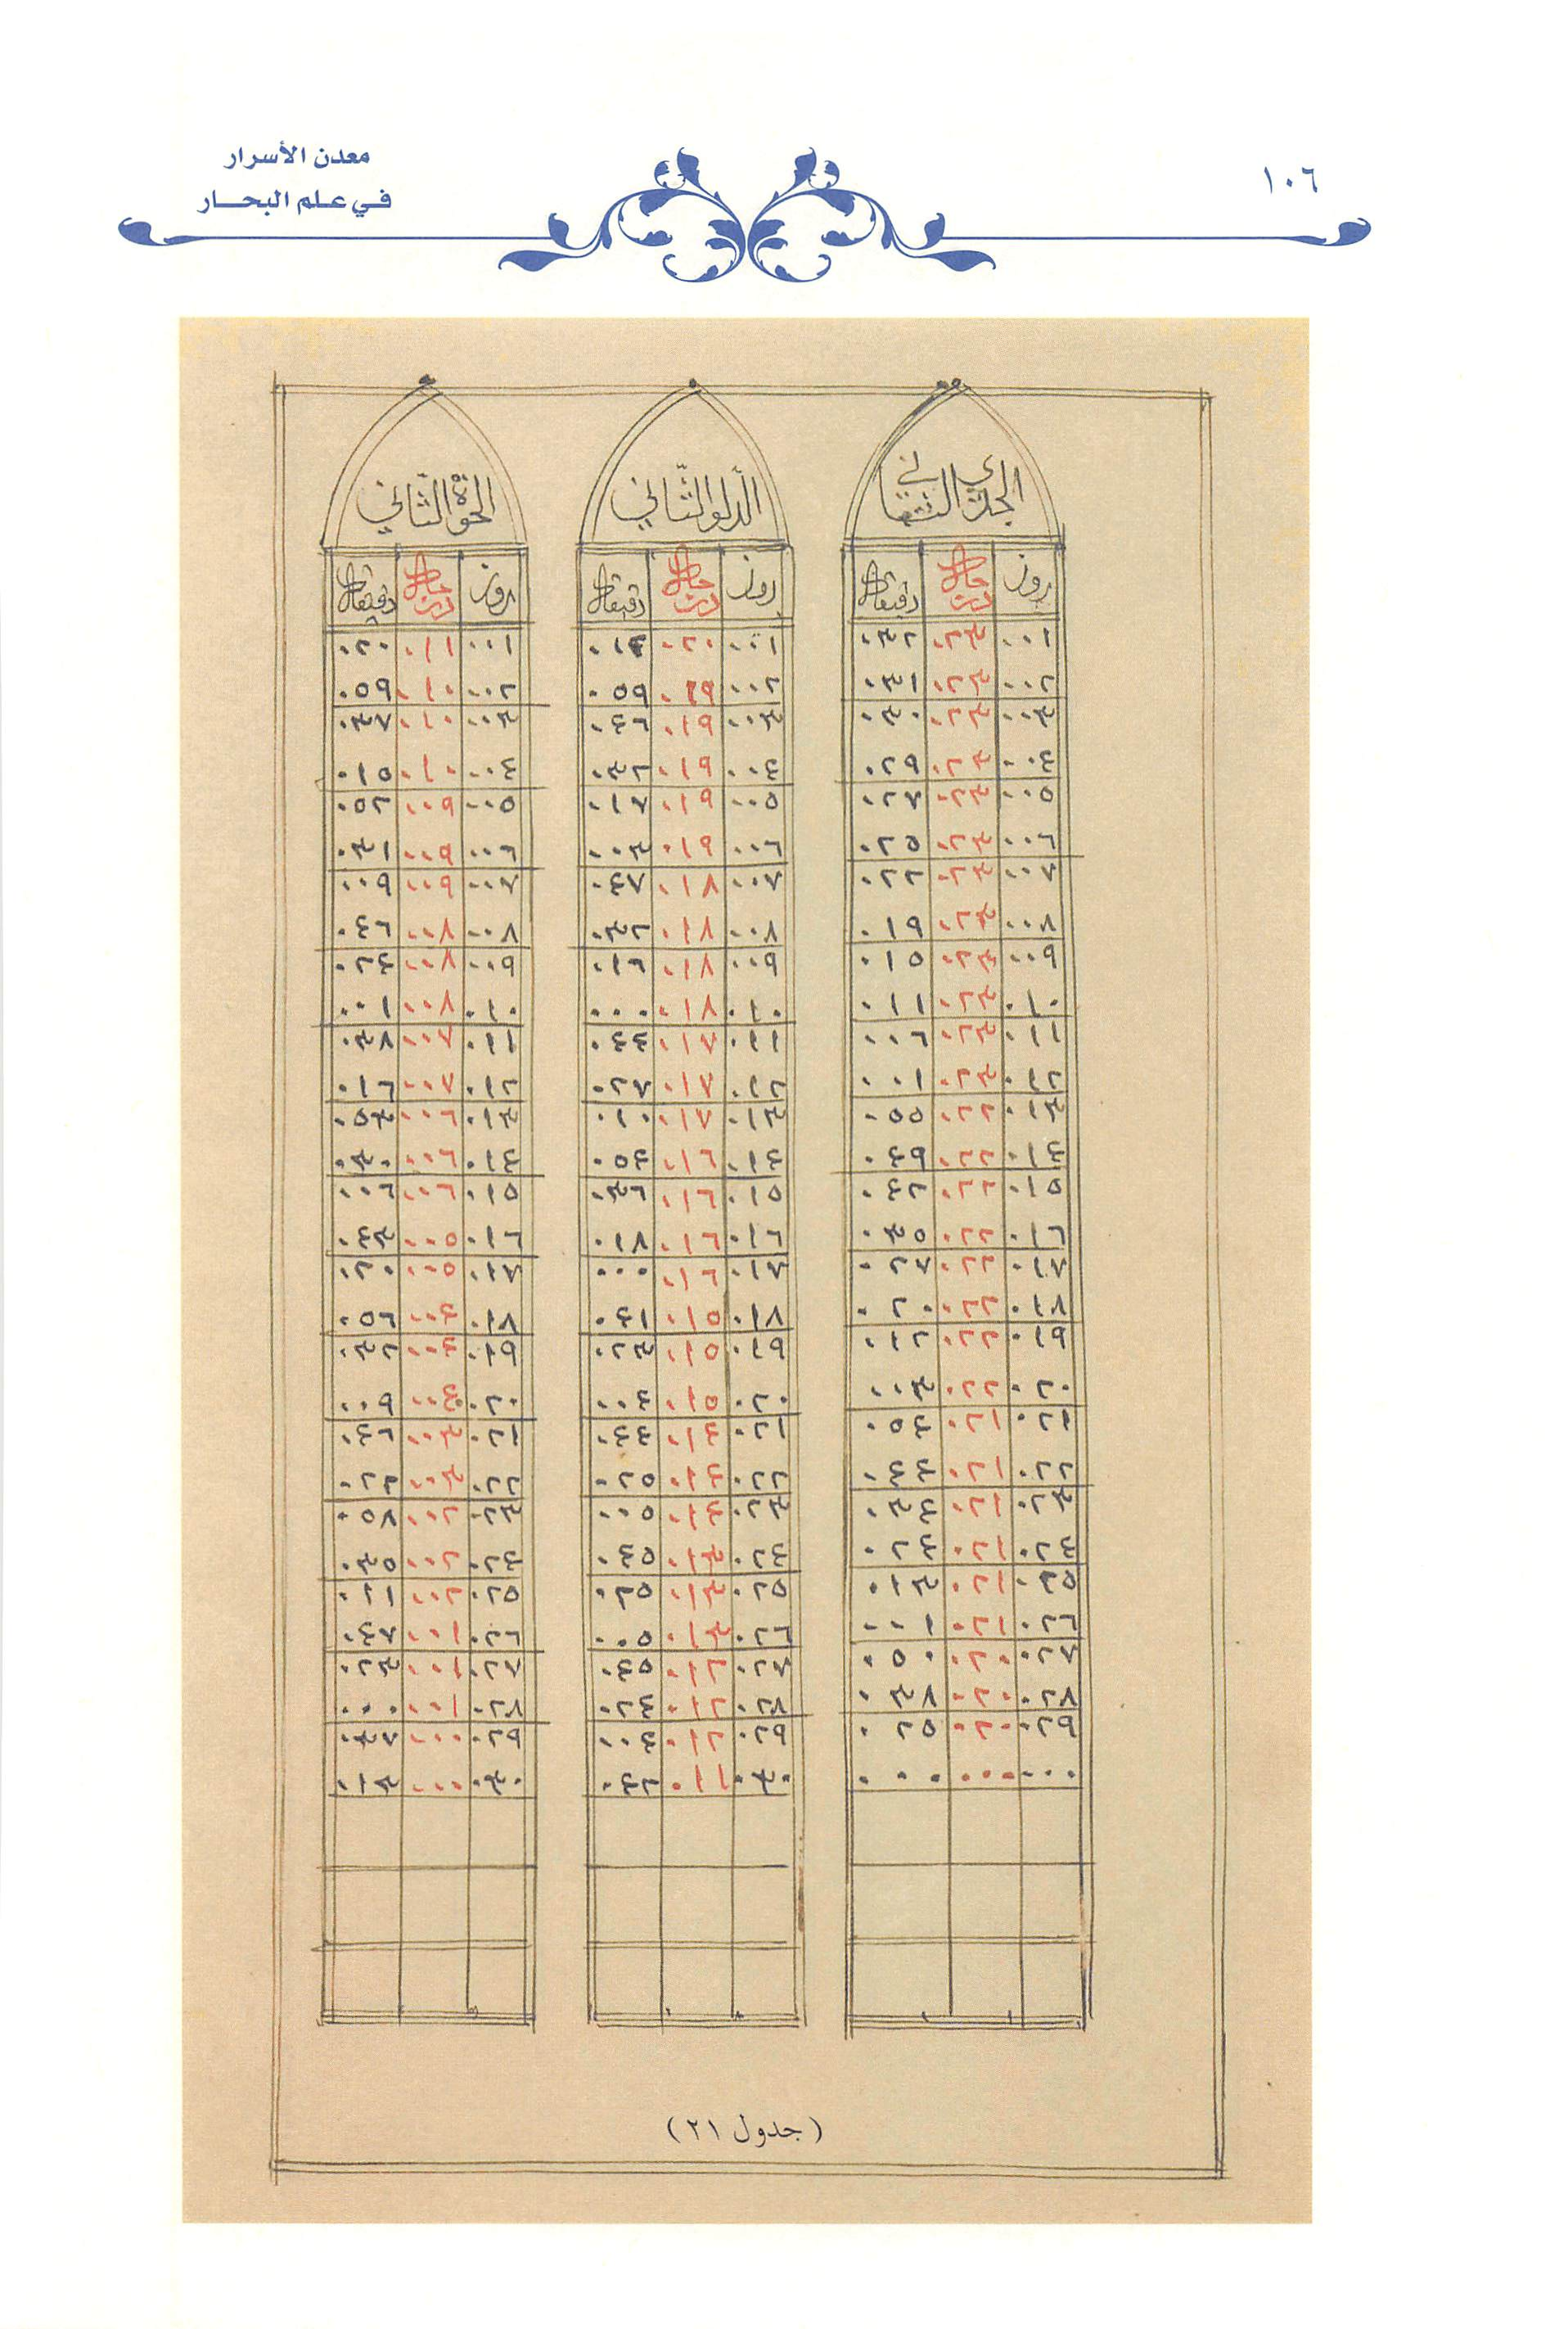 معدن الأسرار
في علم البحار
١٠٦
الجدي الثاني
روز درجات دقيقات
٠٠١ ٠٢٣ ٠٣٢
٠٠٢ ٠٢٣ ٠٣١
٠٠٣ ٠٢٣ ٠٣٠
٠٠٤ ٠٢٣ ٠٢٩
٠٠٥ ٠٢٣ ٠٢٧
٠٠٦ ٠٢٣ ٠٢٥
٠٠٧ ٠٢٣ ٠٢٢
٠٠٨ ٠٢٣ ٠١٩
٠٠٩ ٠٢٣ ٠١٥
٠١٠ ٠٢٣ ٠١١
٠١١ ٠٢٣ ٠٠٦
٠١٢ ٠٢٣ ٠٠١
٠١٣ ٠٢٢ ٠٥٥
٠١٤ ٠٢٢ ٠٤٩
٠١٥ ٠٢٢ ٠٤٢
٠١٦ ٠٢٢ ٠٣٥
٠١٧ ٠٢٢ ٠٢٧
٠١٨ ٠٢٢ ٠٢٠
٠١٩ ٠٢٢ ٠١٢
٠٢٠ ٠٢٢ ٠٠٣
٠٢١ ٠٢١ ٠٥٤
٠٢٢ ٠٢١ ٠٤٤
٠٢٣ ٠٢١ ٠٣٤
٠٢٤ ٠٢١ ٠٢٤
٠٢٥ ٠٢١ ٠١٣
٠٢٦ ٠٢١ ٠٠١
٠٢٧ ٠٢٠ ٠٥٠
٠٢٨ ٠٢٠ ٠٣٨
٠٢٩ ٠٢٠ ٠٢٥
٠٠٠ ٠٠٠ ٠٠٠
الدلو الثاني
روز درجات دقيقات
٠٠١ ٠٢٠ ٠١٣
٠٠٢ ٠١٩ ٠٥٩
٠٠٣ ٠١٩ ٠٤٦
٠٠٤ ٠١٩ ٠٣٢
٠٠٥ ٠١٩ ٠١٧
٠٠٦ ٠١٩ ٠٠٣
٠٠٧ ٠١٨ ٠٤٧
٠٠٨ ٠١٨ ٠٣٢
٠٠٩ ٠١٨ ٠١٦
٠١٠ ٠١٨ ٠٠٠
٠١١ ٠١٧ ٠٤٤
٠١٢ ٠١٧ ٠٢٧
٠١٣ ٠١٧ ٠١٠
٠١٤ ٠١٦ ٠٥٤
٠١٥ ٠١٦ ٠٣٦
٠١٦ ٠١٦ ٠١٨
٠١٧ ٠١٦ ٠٠٠
٠١٨ ٠١٥ ٠٤١
٠١٩ ٠١٥ ٠٢٣
٠٢٠ ٠١٥ ٠٠٤
٠٢١ ٠١٤ ٠٤٤
٠٢٢ ٠١٤ ٠٢٥
٠٢٣ ٠١٤ ٠٠٥
٠٢٤ ٠١٣ ٠٤٥
٠٢٥ ٠١٣ ٠٢٥
٠٢٦ ٠١٣ ٠٠٥
٠٢٧ ٠١٢ ٠٤٥
٠٢٨ ٠١٢ ٠٢٤
٠٢٩ ٠١٢ ٠٠٤
٠٣٠ ٠١١ ٠٤٢
الحوة الثاني
روز درجات دقيقات
٠٠١ ٠١١ ٠٢٠
٠٠٢ ٠١٠ ٠٥٩
٠٠٣ ٠١٠ ٠٣٧
٠٠٤ ٠١٠ ٠١٥
٠٠٥ ٠٠٩ ٠٥٢
٠٠٦ ٠٠٩ ٠٣١
٠٠٧ ٠٠٩ ٠٠٩
٠٠٨ ٠٠٨ ٠٤٦
٠٠٩ ٠٠٨ ٠٢٤
٠١٠ ٠٠٨ ٠٠١
٠١١ ٠٠٧ ٠٣٨
٠١٢ ٠٠٧ ٠١٦
٠١٣ ٠٠٦ ٠٥٣
٠١٤ ٠٠٦ ٠٣٠
٠١٥ ٠٠٦ ٠٠٦
٠١٦ ٠٠٥ ٠٤٣
٠١٧ ٠٠٥ ٠٢٠
٠١٨ ٠٠٤ ٠٥٦
٠١٩ ٠٠٤ ٠٣٢
٠٢٠ ٠٠٤ ٠٠٩
٠٢١ ٠٠٣ ٠٤٦
٠٢٢ ٠٠٣ ٠٢٢
٠٢٣ ٠٠٢ ٠٥٨
٠٢٤ ٠٠٢ ٠٣٥
٠٢٥ ٠٠٢ ٠١١
٠٢٦ ٠٠١ ٠٤٧
٠٢٧ ٠٠١ ٠٢٣
٠٢٨ ٠٠١ ٠٠٠
٠٢٩ ٠٠٠ ٠٣٧
٠٣٠ ٠٠٠ ٠١٣
(جدول ٢١)